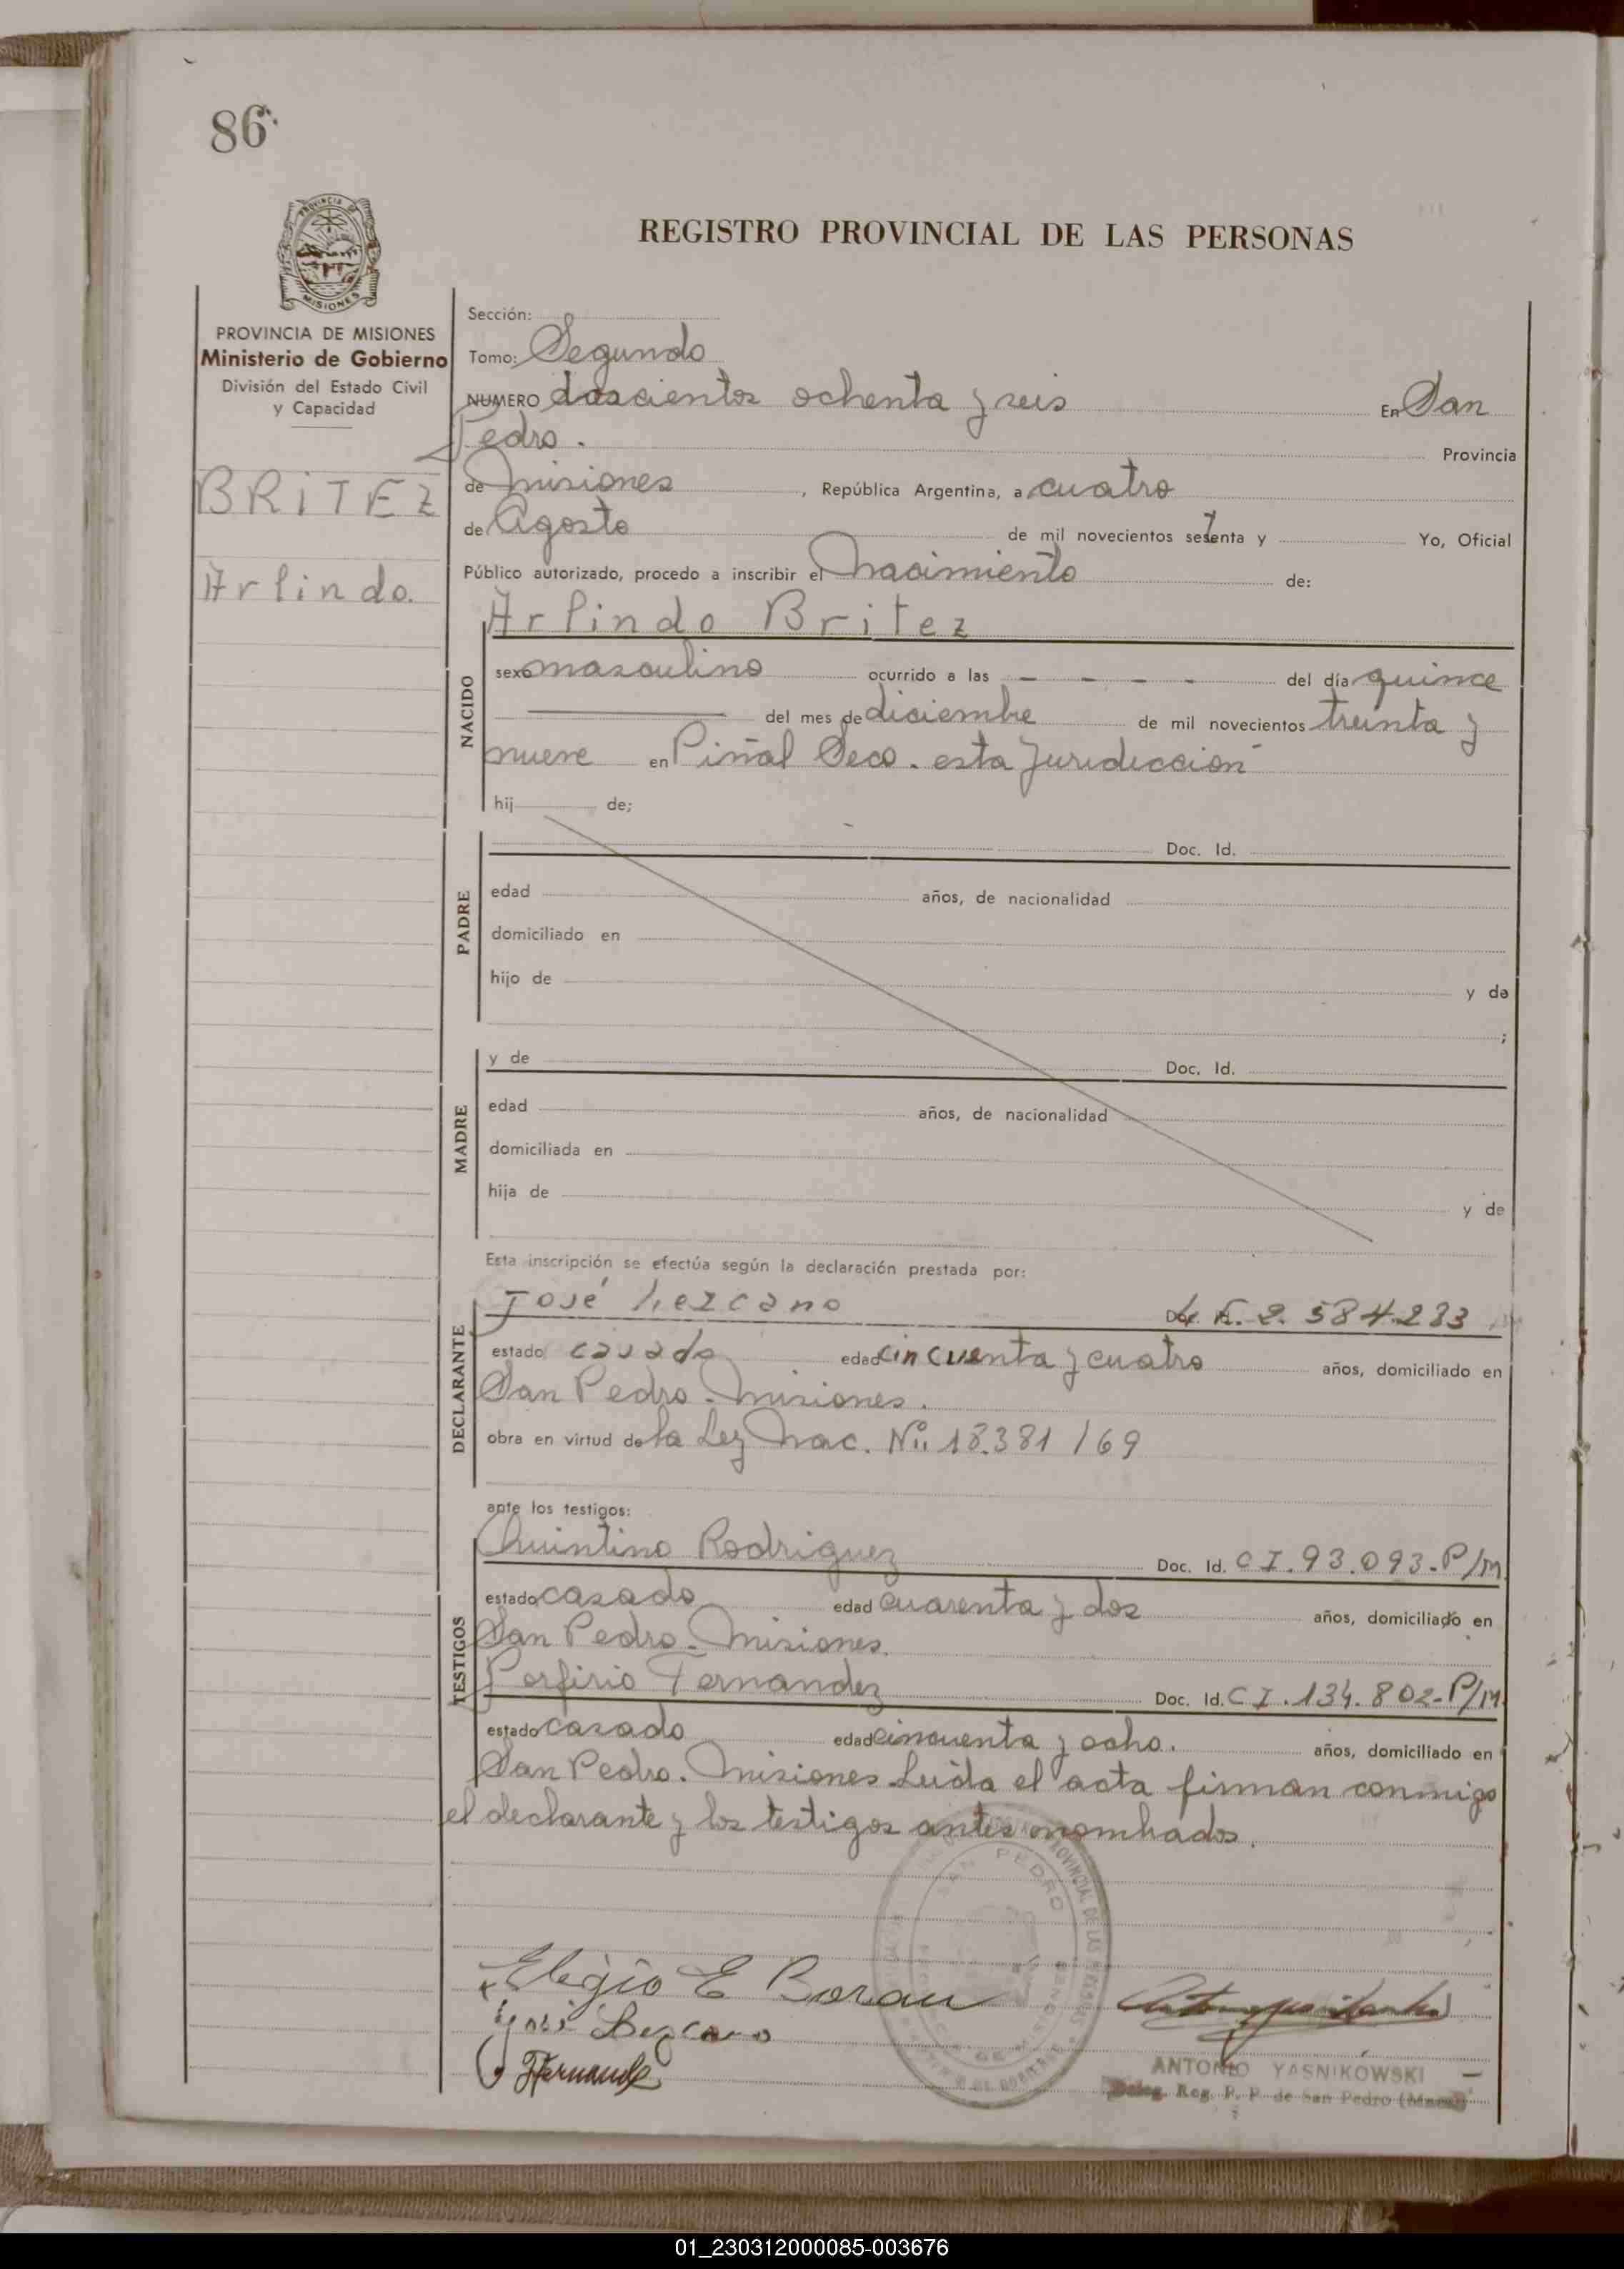 86
REGISTRO PROVINCIAL DE LAS PERSONAS
PROVINCIA DE MISIONES
Ministerio de Gobierno
División del Estado Civil
y Capacidad
BRITEZ
Arlindo.
Sección:
Tomo: Segundo
NUMERO doscientos ochenta y seis En San
Pedro. Provincia
de Misiones, República Argentina, a cuatro
de Agosto de mil novecientos setenta y Yo, Oficial
Público autorizado, procedo a inscribir el Nacimiento de:
Arlindo Britez
NACIDO
sexo masculino ocurrido a las - - - - del día quince
del mes de diciembre de mil novecientos treinta y
nueve en Piñal Seco. esta Juridiccion
hij de;
PADRE
Doc. Id.
edad años, de nacionalidad
domiciliado en
hijo de y de
;
MADRE
y de Doc. Id.
edad años, de nacionalidad
domiciliada en
hija de y de
Esta inscripción se efectúa según la declaración prestada por:
DECLARANTE
José Lezcano L.E. 2.584.283
estado casado edad cincuenta y cuatro años, domiciliado en
San Pedro. Misiones.
obra en virtud de la Ley Nac. Nº 18.381/69
ante los testigos:
TESTIGOS
Quintino Rodriguez Doc. Id. CI. 93.093-P/M
estado casado edad cuarenta y dos años, domiciliado en
San Pedro. Misiones.
Porfirio Fernandez Doc. Id. CI. 134.802-P/M
estado casado edad cincuenta y ocho. años, domiciliado en
San Pedro. Misiones. Leída el acta firman conmigo
el declarante y los testigos antes nombrados.
SAN PEDRO
PROVINCIAL DE LAS PERSONAS
José Lezcano
Fernande
ANTONIO YASNIKOWSKI
Deleg. Reg. P. P. de San Pedro (Mnes)
01_230312000085-003676